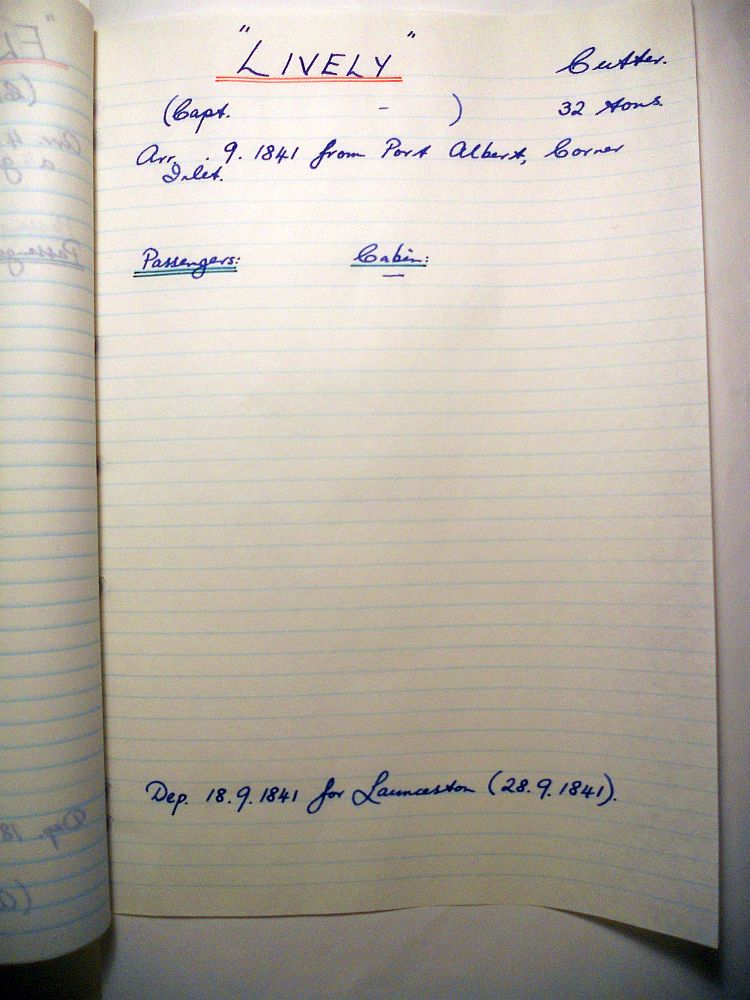 "LIVELY" Cutter.
(Capt. - ) 32 tons.
Arr. . 9. 1841 from Port Albert, Corner
Inlet.
Passengers: Cabin:
—
Dep. 18. 9. 1841 for Launceston (28. 9. 1841).